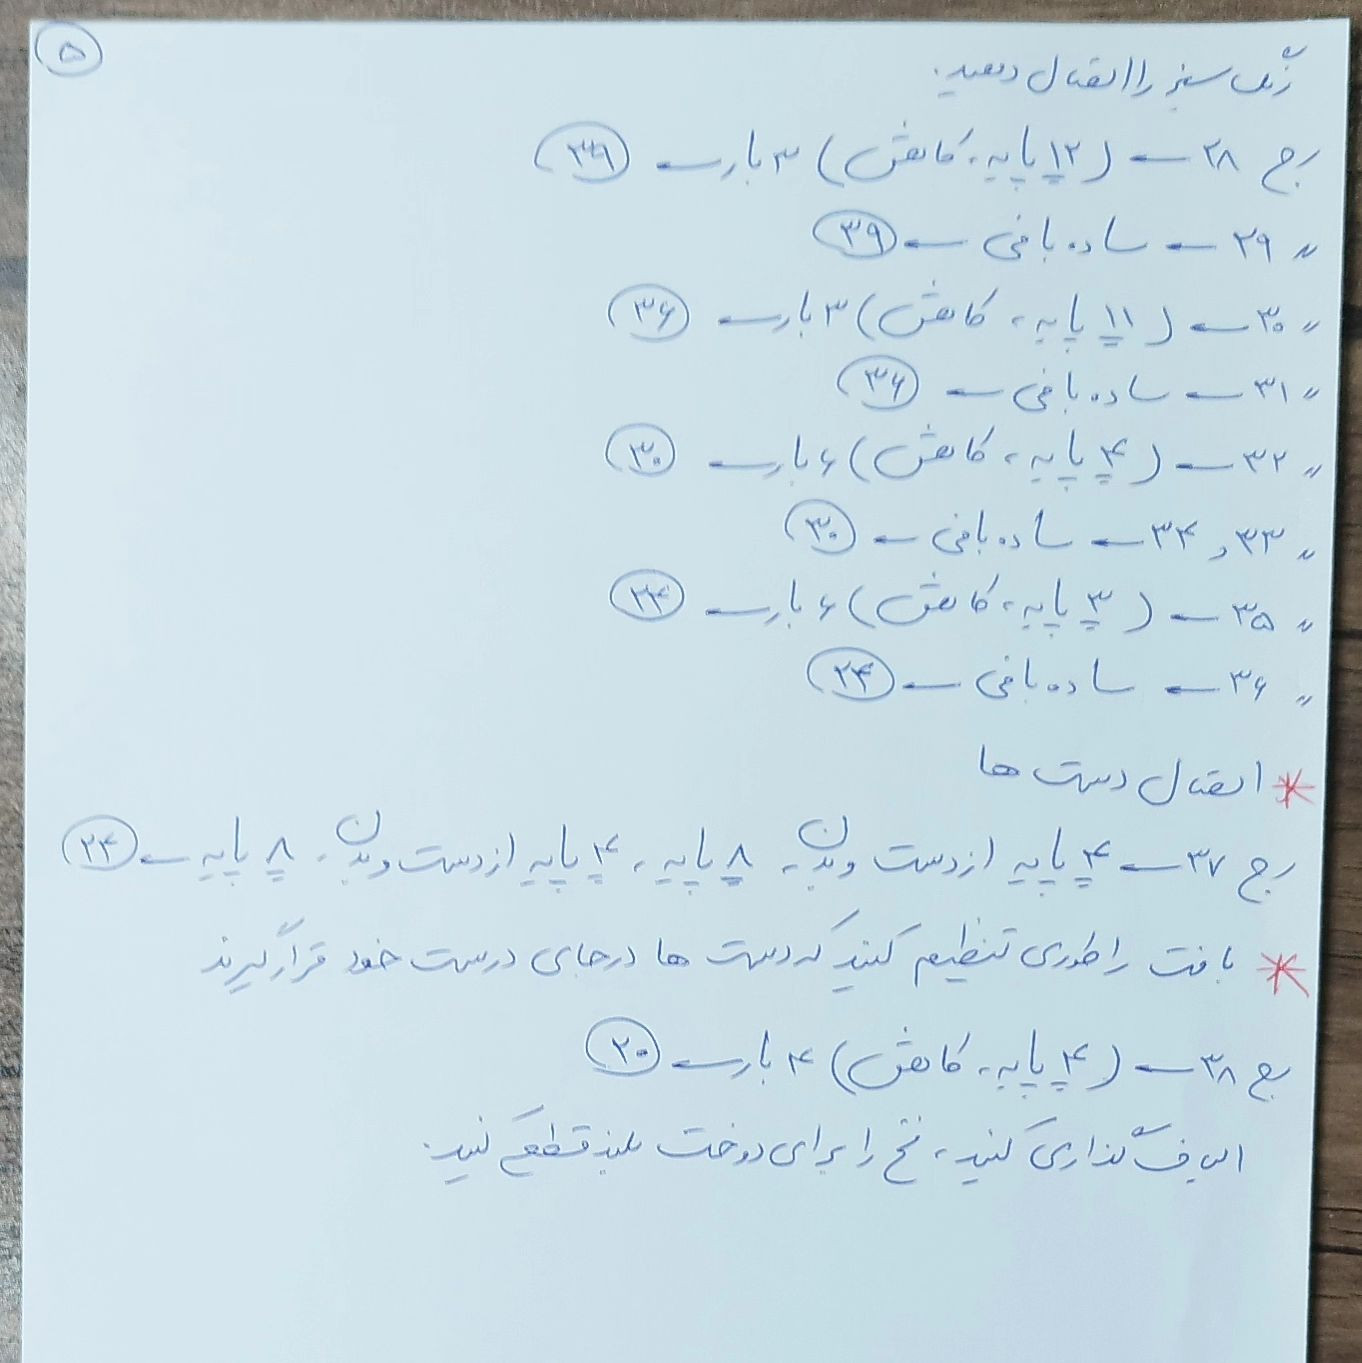 ۵
رنگ سبز را اتصال دهید.
رج ۲۸ ← (۱۲ پایه، کاهش) ۳ بار ← ۳۹
〃 ۲۹ ← ساده بافی ← ۳۹
〃 ۳۰ ← (۱۱ پایه، کاهش) ۳ بار ← ۳۶
〃 ۳۱ ← ساده بافی ← ۳۶
〃 ۳۲ ← (۴ پایه، کاهش) ۶ بار ← ۳۰
〃 ۳۳ و ۳۴ ← ساده بافی ← ۳۰
〃 ۳۵ ← (۳ پایه، کاهش) ۶ بار ← ۲۴
〃 ۳۶ ← ساده بافی ← ۲۴
* اتصال دست ها
رج ۳۷ ← ۴ پایه از دست و بدن، ۸ پایه، ۴ پایه از دست و بدن، ۸ پایه ← ۲۴
* بافت را طوری تنظیم کنید که دست ها در جای درست خود قرار گیرند
رج ۳۸ ← (۴ پایه، کاهش) ۴ بار ← ۲۰
الیاف گذاری کنید، نخ را برای دوخت بلند قطع کنید.